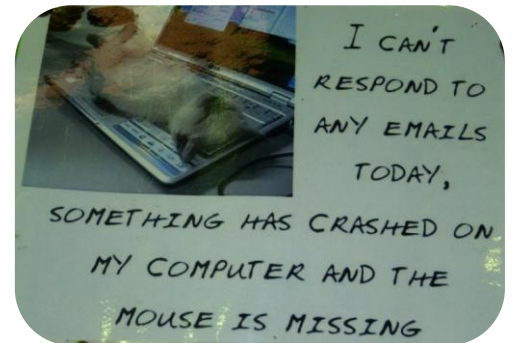 I CAN'T
RESPOND TO
ANY EMAILS
TODAY,
SOMETHING HAS CRASHED ON
MY COMPUTER AND THE
MOUSE IS MISSING